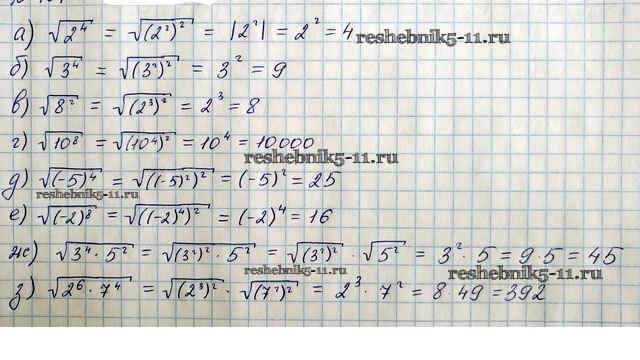 а) √2⁴ = √(2²)² = |2²| = 2² = 4 reshebnik5-11.ru
б) √3⁴ = √(3²)² = 3² = 9
в) √8² = √(2³)² = 2³ = 8
г) √10⁸ = √(10⁴)² = 10⁴ = 10000
reshebnik5-11.ru
д) √(-5)⁴ = √((-5)²)² = (-5)² = 25
reshebnik5-11.ru
е) √(-2)⁸ = √((-2)⁴)² = (-2)⁴ = 16
ж) √3⁴ · 5² = √(3²)² · 5² = √(3²)² · √5² = 3² · 5 = 9 · 5 = 45
reshebnik5-11.ru reshebnik5-11.ru
з) √2⁶ · 7⁴ = √(2³)² · √(7²)² = 2³ · 7² = 8 · 49 = 392